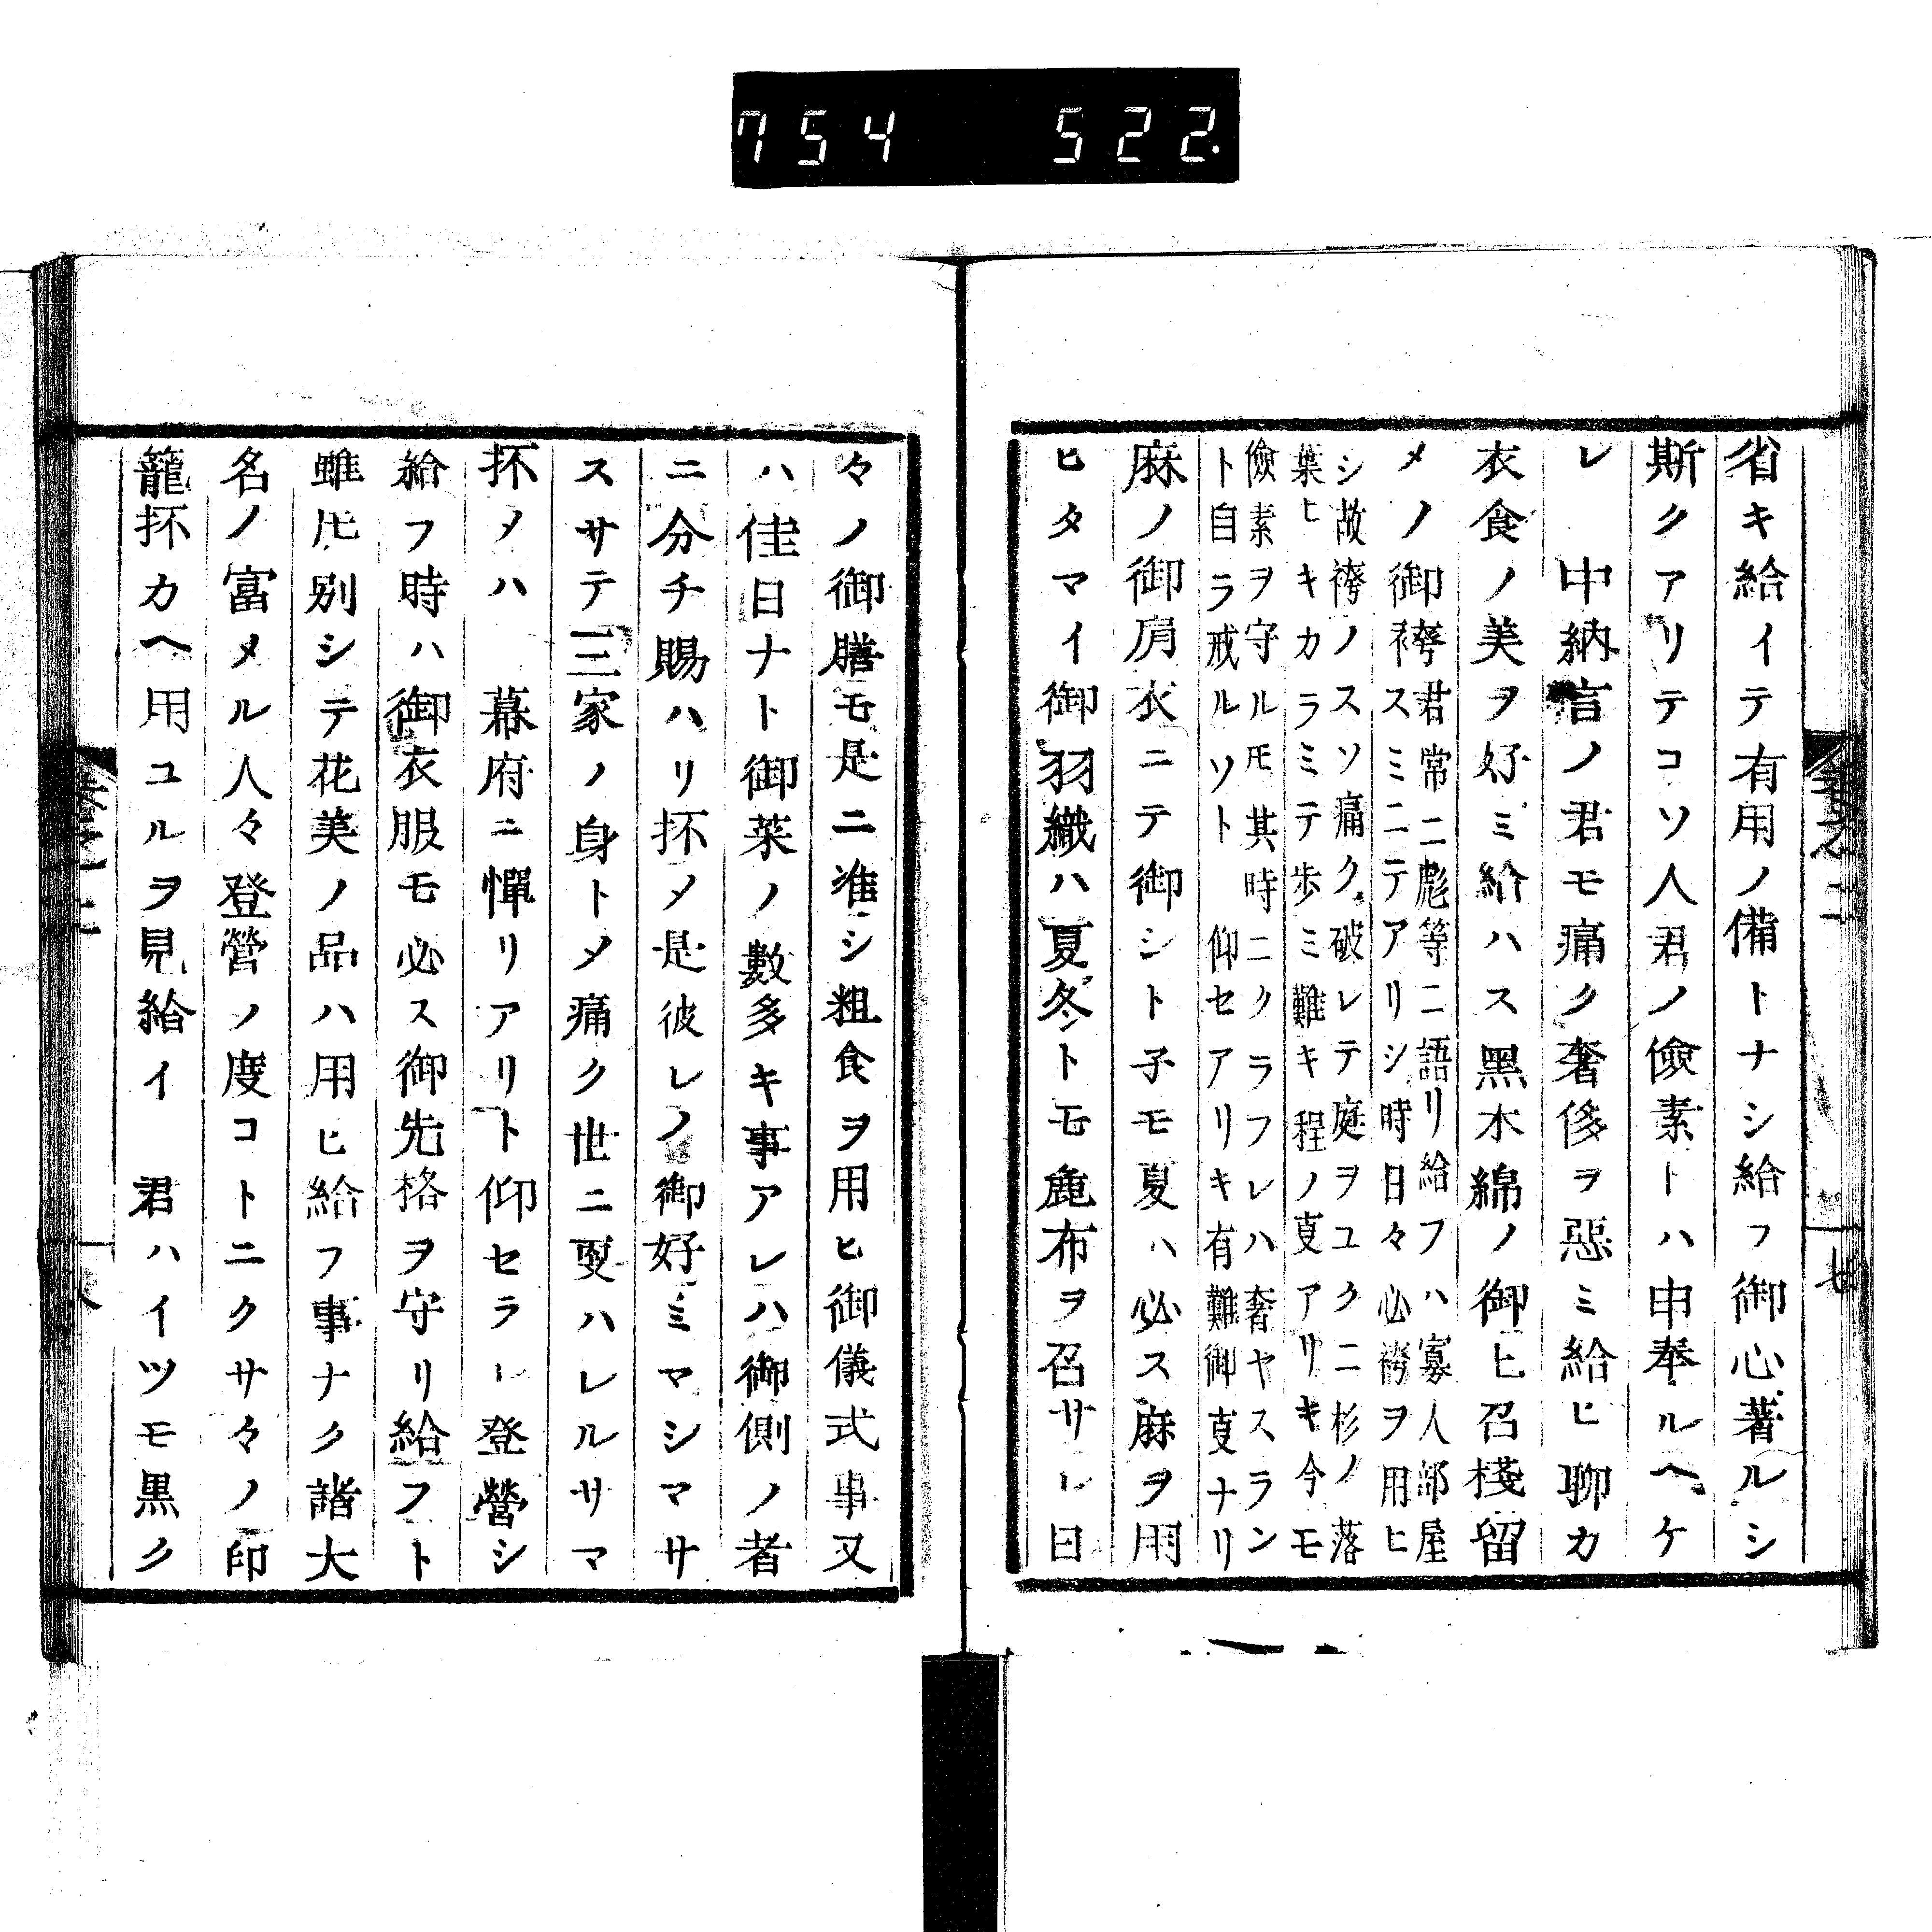 754 522.
省キ給イテ有用ノ備トナシ給フ御心著ルシ
斯クアリテコソ人君ノ儉素トハ申奉ルヘケ
レ　中納言ノ君モ痛ク奢侈ヲ惡ミ給ヒ聊カ
衣食ノ美ヲ好ミ給ハス黑木綿ノ御ヒ召棧留
メノ御袴
君常ニ彪等ニ語リ給フハ寡人部屋
スミニテアリシ時日々必袴ヲ用ヒ
シ故袴ノスソ痛ク破レテ庭ヲユクニ杉ノ落
葉ヒキカラミテ歩ミ難キ程ノ叓アリキ今モ
儉素ヲ守ルモ其時ニクラフレハ奢ヤスラン
ト自ラ戒ルソト　仰セアリキ有難御叓ナリ
麻ノ御肩衣ニテ御シト子モ夏ハ必ス麻ヲ用
ヒタマイ御羽織ハ夏冬トモ麁布ヲ召サレ日
々ノ御膳モ是ニ準シ粗食ヲ用ヒ御儀式事又
ハ佳日ナト御菜ノ數多キ事アレハ御側ノ者
ニ分チ賜ハリ抔メ是彼レノ御好ミマシマサ
スサテ三家ノ身トメ痛ク世ニ叓ハレルサマ
抔メハ　幕府ニ憚リアリト仰セラレ登營シ
給フ時ハ御衣服モ必ス御先格ヲ守リ給フト
雖𪜈別シテ花美ノ品ハ用ヒ給フ事ナク諸大
名ノ富メル人々登營ノ度コトニクサ々ノ印
籠抔カヘ用ユルヲ見給イ　君ハイツモ黒ク